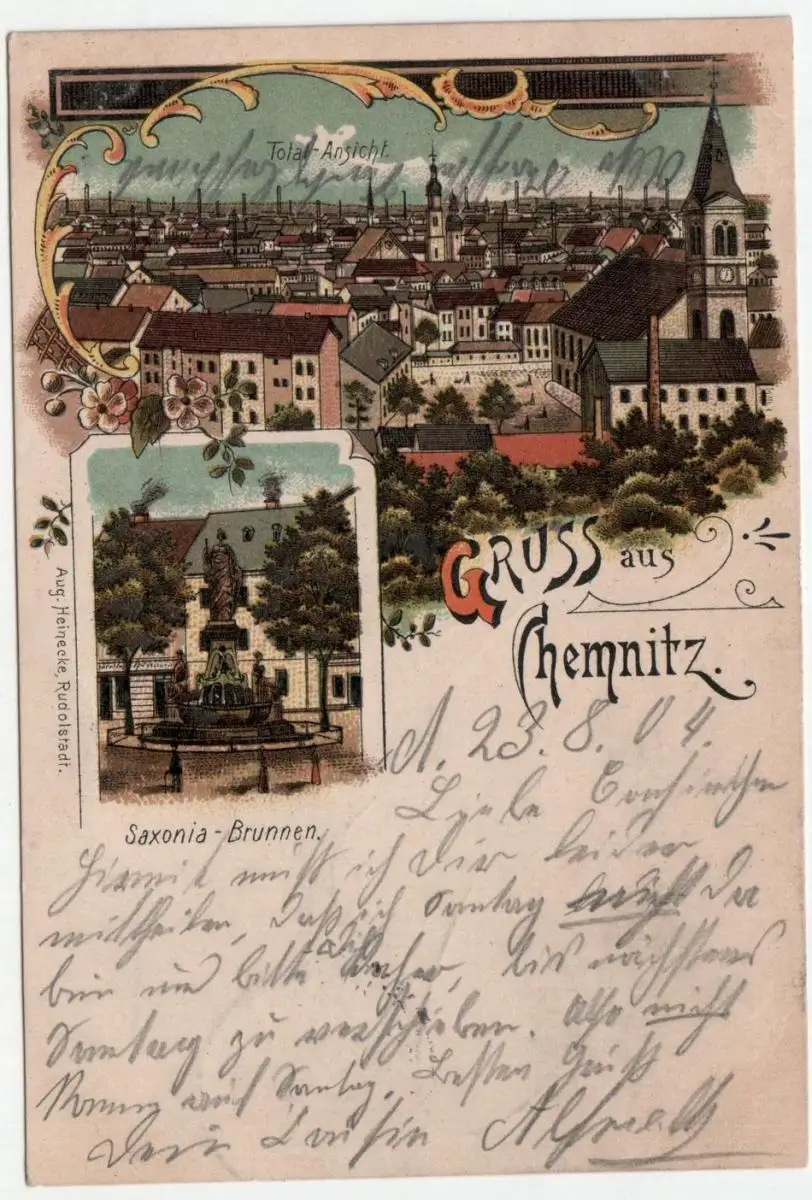 Total-Ansicht.
GRUSS aus
Chemnitz.
Aug: Heinecke, Rudolstadt.
Saxonia-Brunnen.
23.8.04.
Liebe
Hiermit muß ich Dir leider
mittheilen, daß ich Sontag nicht da
bin und bitte Dich daher, bis nächsten
Sontag zu verschieben. Also nicht
auf Sontag. Besten Gruß
Dein Cousin Alfred